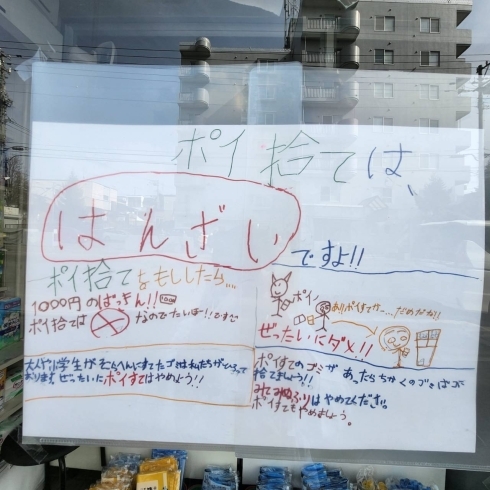 ポイ捨ては、
はんざい
ですよ!!
ポイ捨てをもししたら...
1000円のばっきん!!
ポイ捨ては
なのでたいほ!!ですよ
ポイ
ぜったいにダメ!!
大人や小学生が
ゴミは私たちがひろって
おります。ぜったいにポイすてはやめよう!!
ポイすてのゴミがあったらちかくのゴミばこに
捨てましょう!!
みてみぬふりはやめてください。
ポイすてもやめましょう。